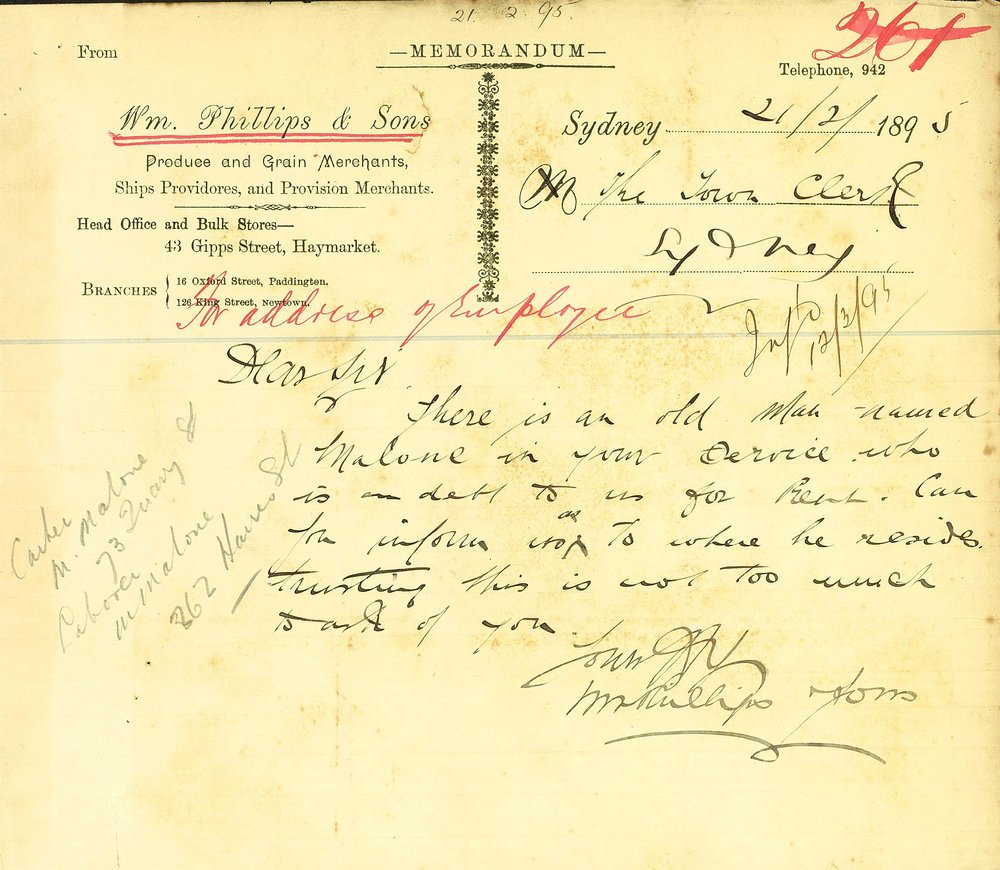 21. 2. 95.
261
From
—MEMORANDUM—
Telephone, 942
Wm. Phillips & Sons
Produce and Grain Merchants,
Ships Providores, and Provision Merchants.
Head Office and Bulk Stores—
43 Gipps Street, Haymarket.
BRANCHES { 16 Oxford Street, Paddington.
126 King Street, Newtown.
Sydney 21/2/ 1895
M The Town Clerk
Sydney
For address of Employee
12/3/95
Dear Sir
There is an old man named
Malone in your service who
is in debt to us for Rent. Can
you inform us as to where he resides
trusting this is not too much
to ask of you
Yours
Wm Phillips & Sons
Carter
M. Malone
73 Quarry St
Laborer
M Malone
362 Harris St